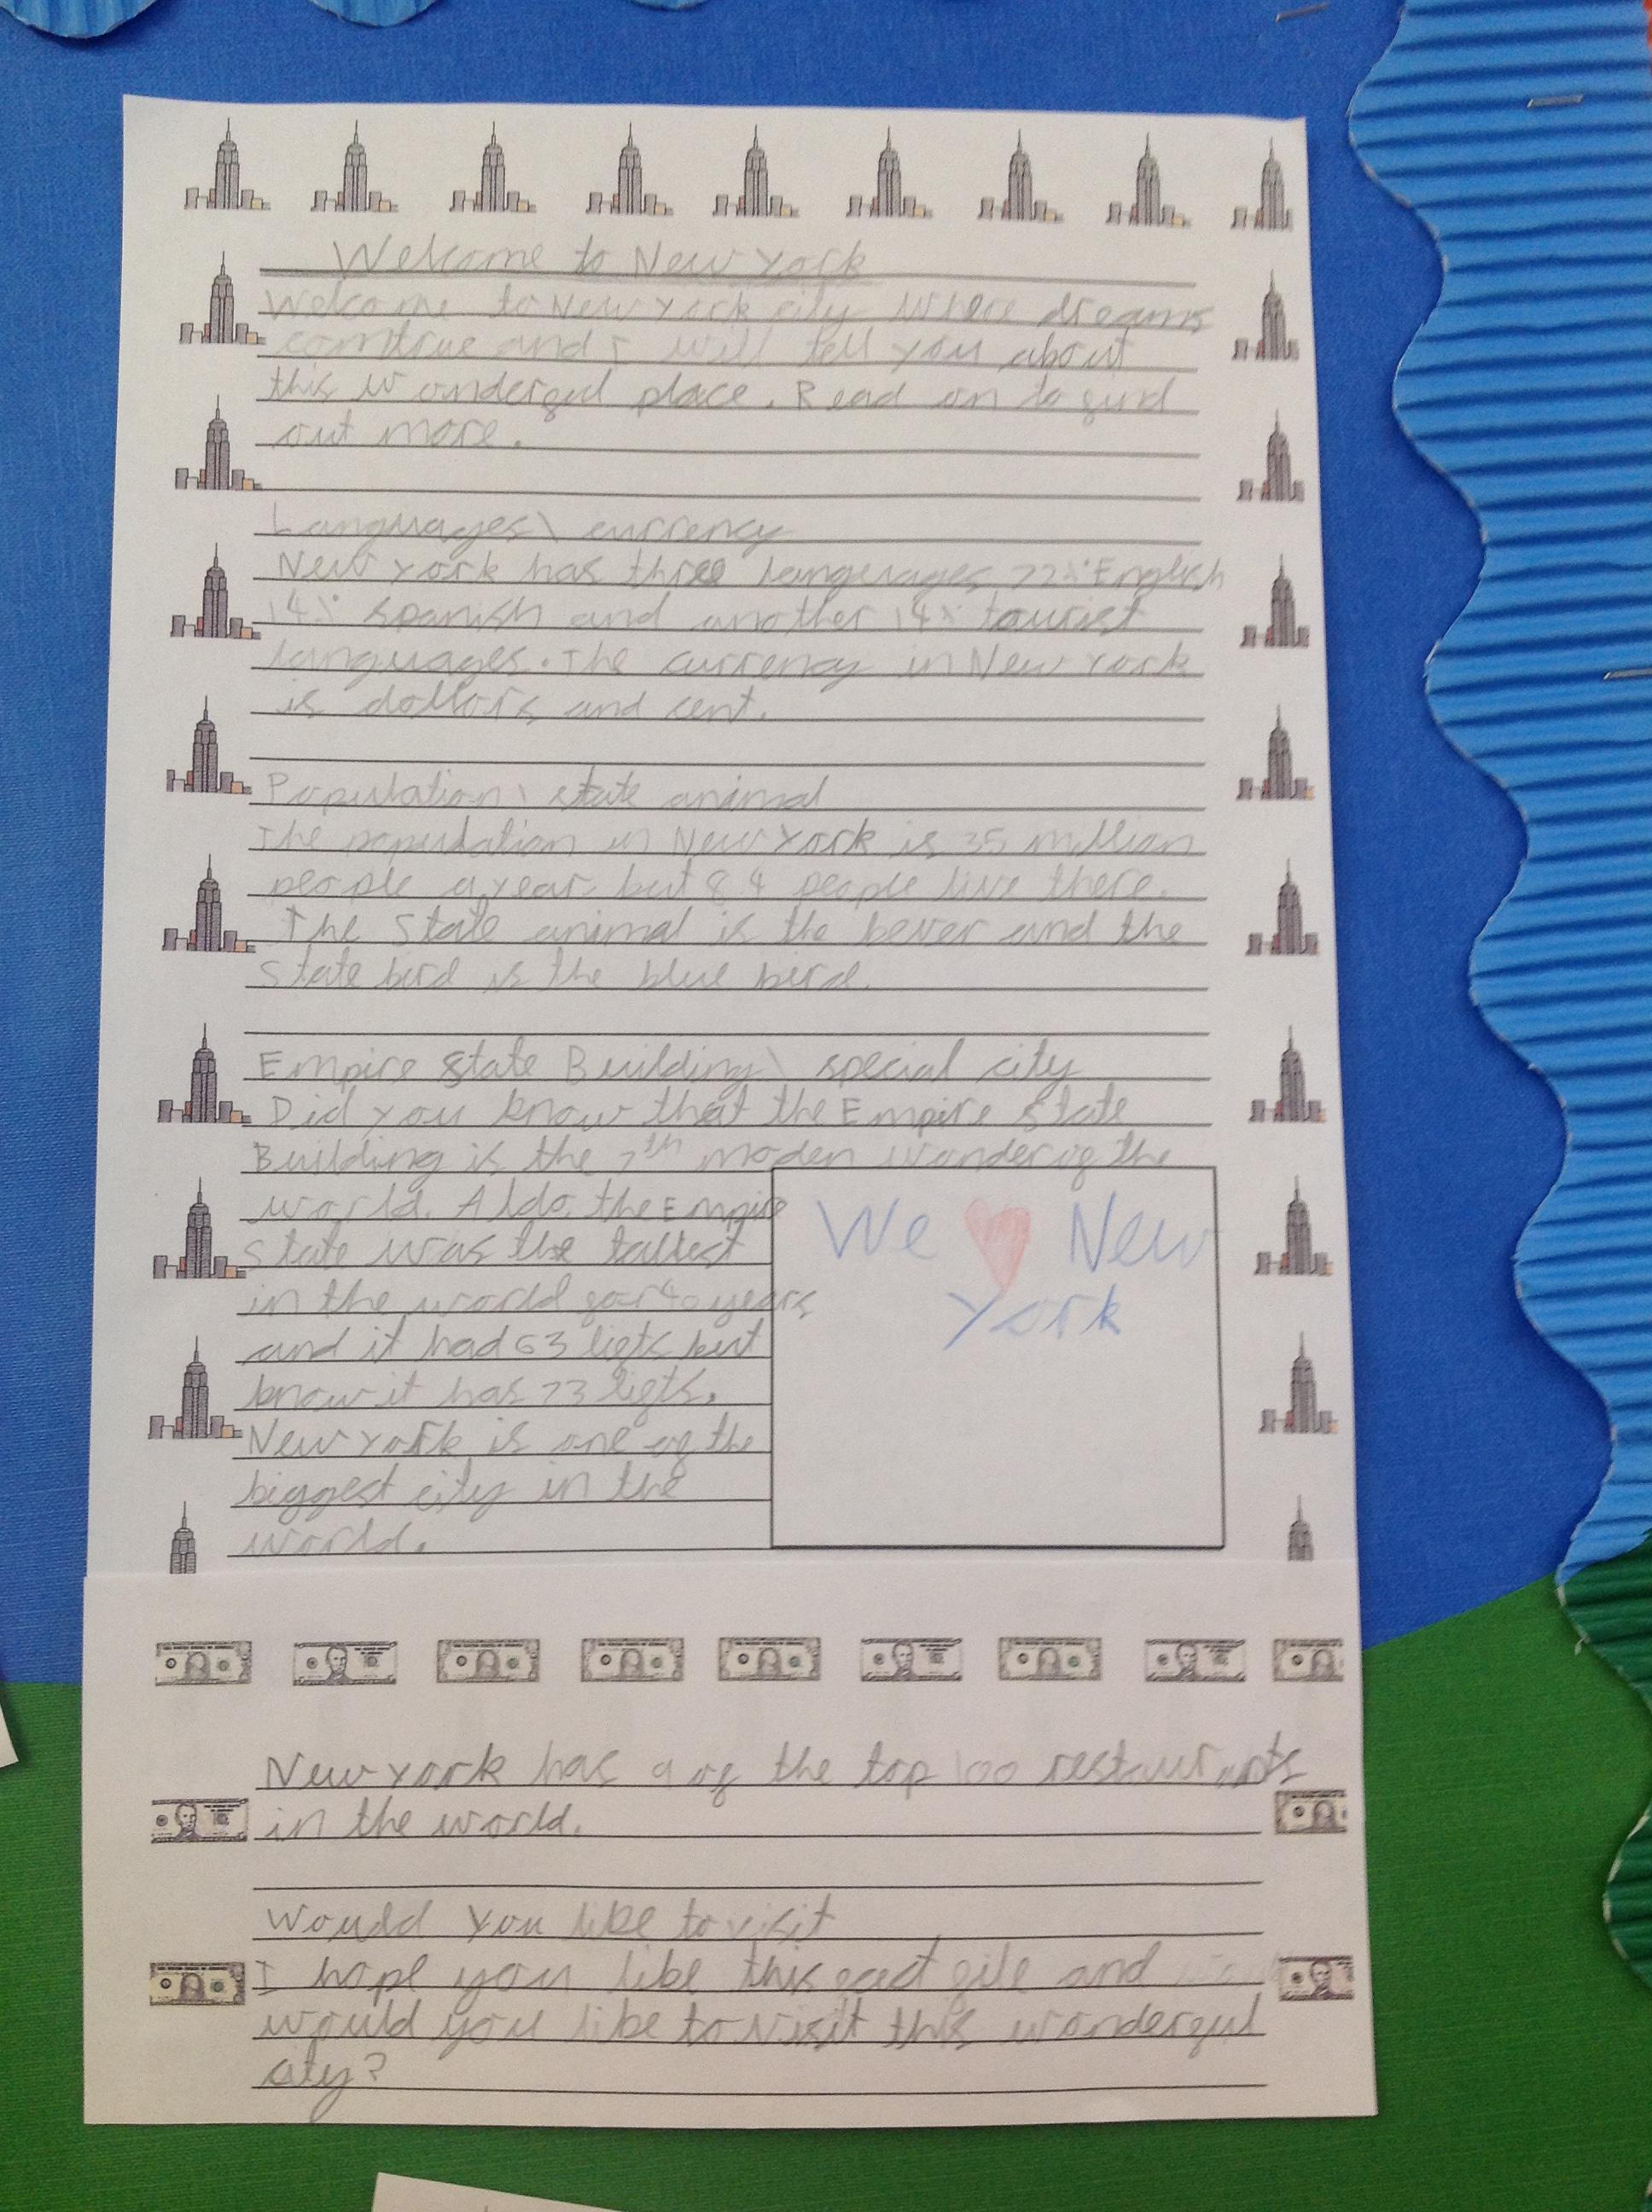 Welcome to New York
Welcome to New York city. Where dreams
comtrue and I will tell you about
this wonderful place. Read on to find
out more.
Languages\ currency
New York has three languages 72% English
14% spanish and another 14% tourist
languages. The currency in New York
is dollors and cent.
Population\ state animal
The population in New York is 35 million
people a year but 8.4 people live there.
The State animal is the bever and the
State bird is the blue bird.
Empire State Building\ special city
Did you know that the Empire State
Building is the 7th moden wonder of the
world. Aldo. the Empire
State was the tallest
in the world for 40 years
and it had 63 ligts but
know it has 73 ligts.
New York is one of the
biggest city in the
world.
We ❤ New
York
New York has 9 of the top 100 restaurants
in the world.
Would you like to visit
I hope you like this fact file and
would you like to visit this wonderful
city?